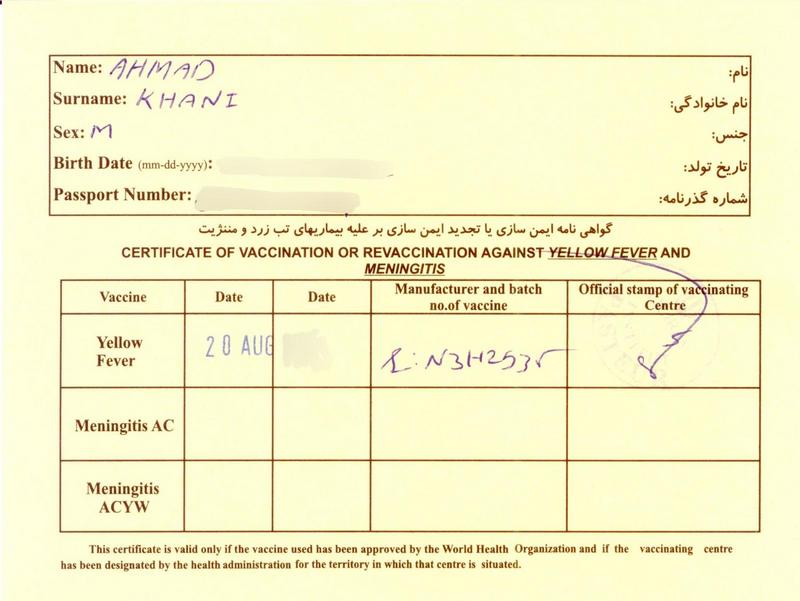 Name: AHMAD نام:
Surname: KHANI نام خانوادگی:
Sex: M جنس:
Birth Date (mm-dd-yyyy): تاریخ تولد:
Passport Number: شماره گذرنامه:
گواهی نامه ایمن سازی یا تجدید ایمن سازی بر علیه بیماریهای تب زرد و مننژیت
CERTIFICATE OF VACCINATION OR REVACCINATION AGAINST YELLOW FEVER AND
MENINGITIS
Vaccine Date Date Manufacturer and batch no.of vaccine Official stamp of vaccinating Centre
Yellow Fever 20 AUG L: N3H2535
Meningitis AC
Meningitis ACYW
This certificate is valid only if the vaccine used has been approved by the World Health Organization and if the vaccinating centre
has been designated by the health administration for the territory in which that centre is situated.